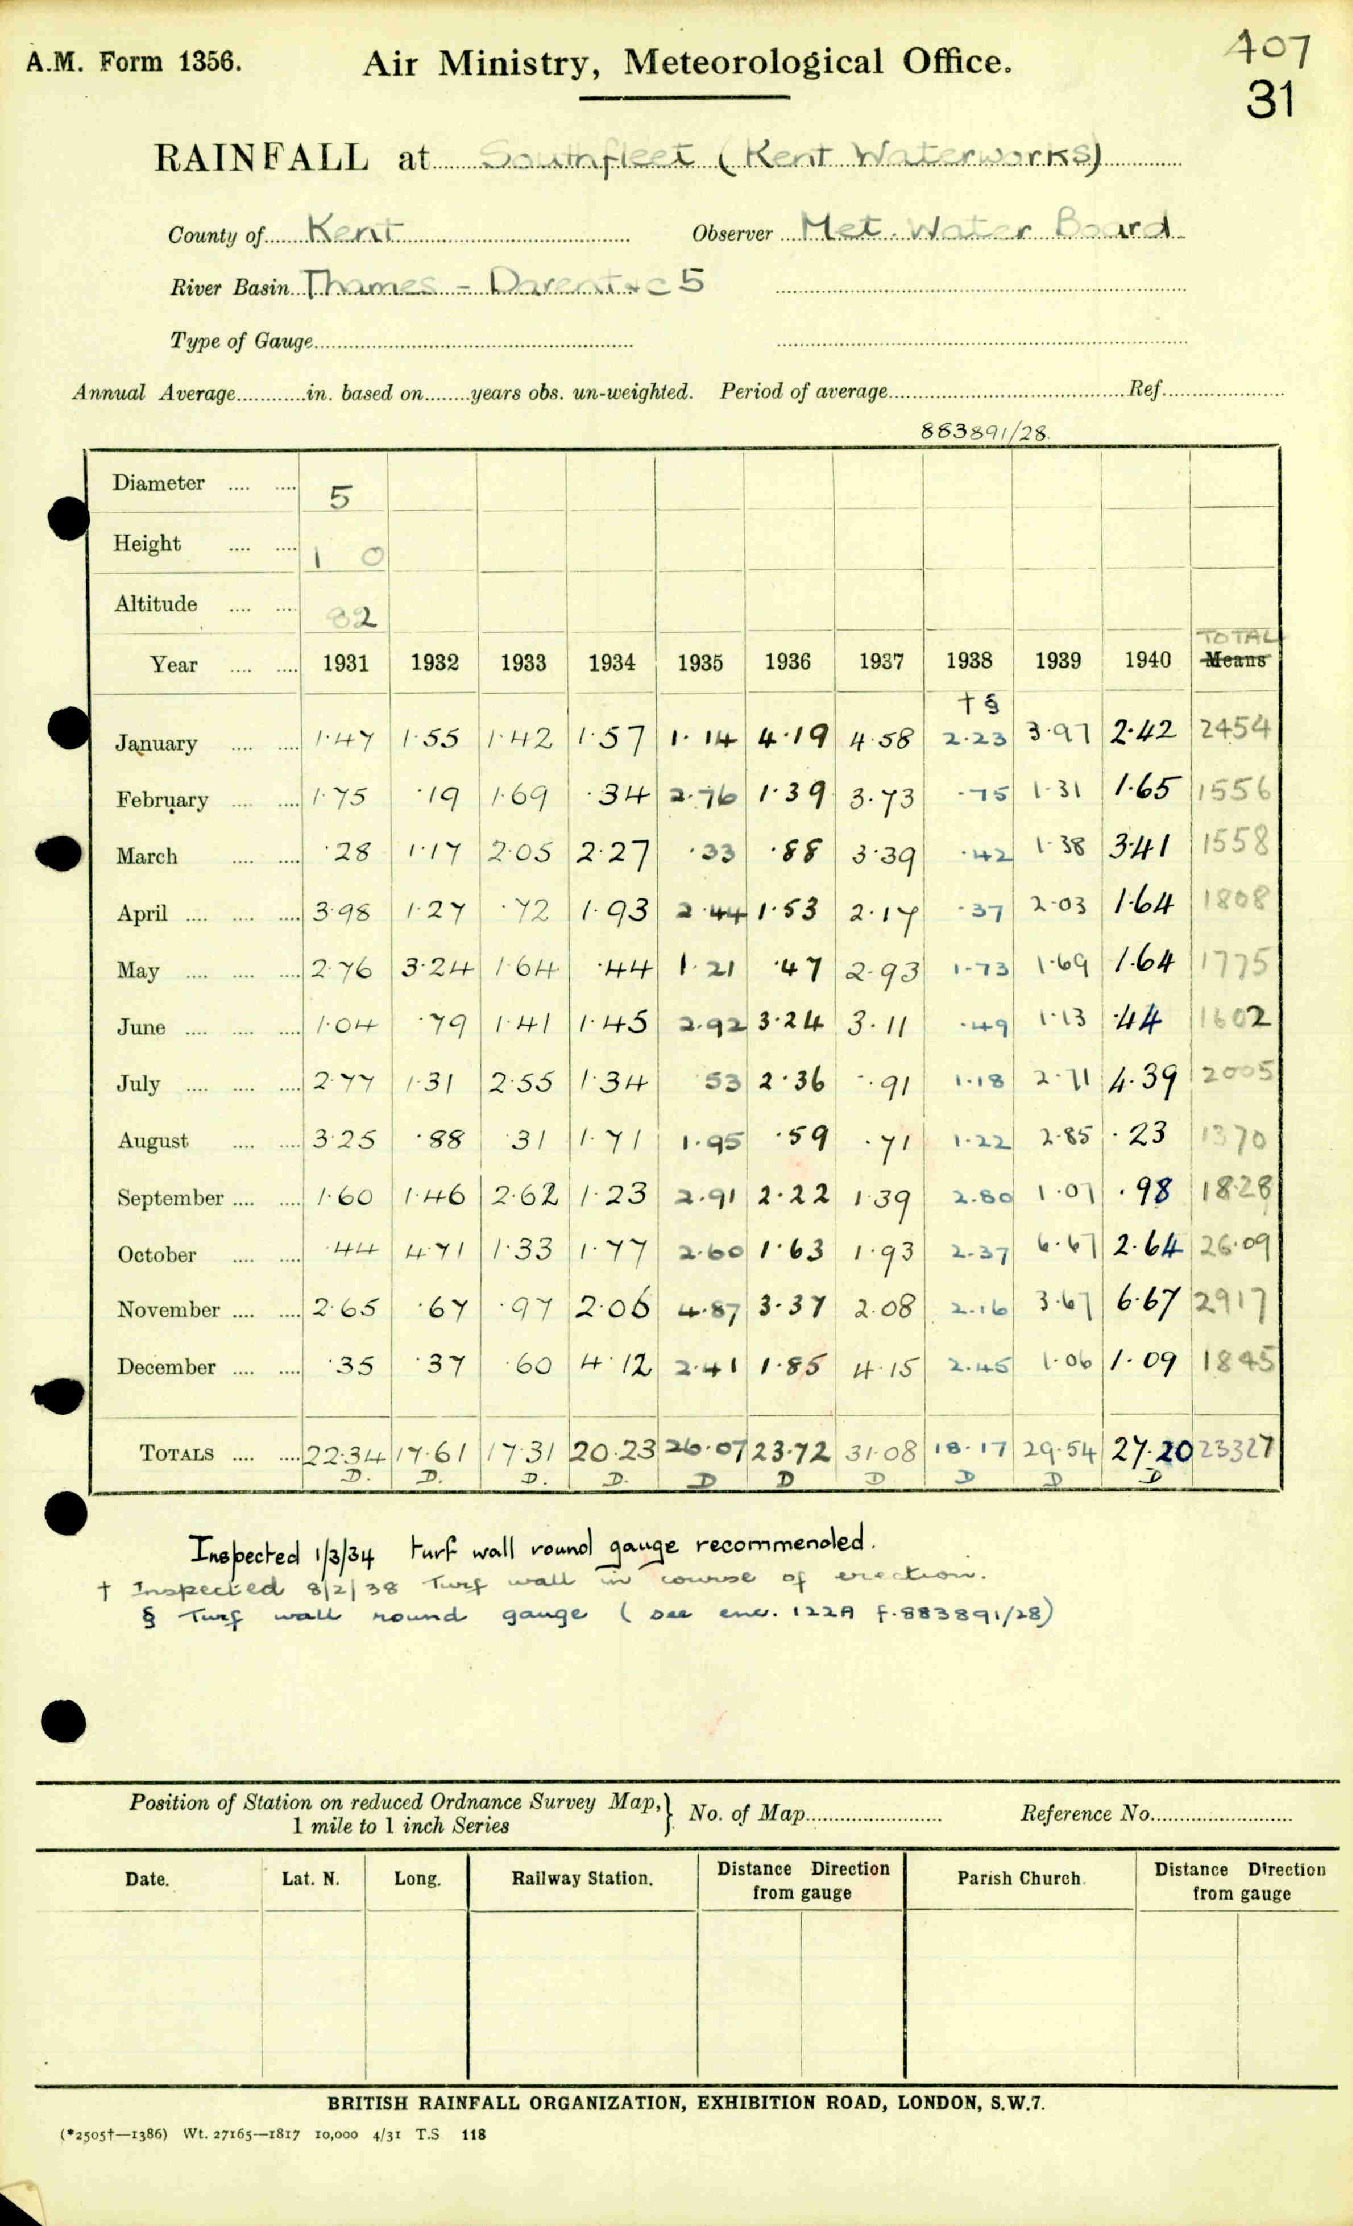 A.M. Form 1356.
Air Ministry, Meteorological Office.
407
31
RAINFALL at Southfleet (Kent Waterworks)
County of Kent Observer Met. Water Board
River Basin Thames - Darent &c 5
Type of Gauge
Annual Average in. based on years obs. un-weighted. Period of average Ref.
883891/28.
Diameter 5
Height 1 0
Altitude 82
TOTAL
Year 1931 1932 1933 1934 1935 1936 1937 1938 1939 1940 Means
† §
January 1.47 1.55 1.42 1.57 1.14 4.19 4.58 2.23 3.97 2.42 2454
February 1.75 .19 1.69 .34 2.76 1.39 3.73 .75 1.31 1.65 1556
March .28 1.17 2.05 2.27 .33 .88 3.39 .42 1.38 3.41 1558
April 3.98 1.27 .72 1.93 2.44 1.53 2.17 .37 2.03 1.64 1808
May 2.76 3.24 1.64 .44 1.21 .47 2.93 1.73 1.69 1.64 1775
June 1.04 .79 1.41 1.45 2.92 3.24 3.11 .49 1.13 .44 1602
July 2.77 1.31 2.55 1.34 53 2.36 .91 1.18 2.71 4.39 2005
August 3.25 .88 .31 1.71 1.95 .59 .71 1.22 2.85 .23 1370
September 1.60 1.46 2.62 1.23 2.91 2.22 1.39 2.80 1.07 .98 1828
October .44 4.71 1.33 1.77 2.60 1.63 1.93 2.37 6.67 2.64 26.09
November 2.65 .67 .97 2.06 4.87 3.37 2.08 2.16 3.67 6.67 2917
December .35 .37 .60 4.12 2.41 1.85 4.15 2.45 1.06 1.09 1845
TOTALS 22.34 17.61 17.31 20.23 26.07 23.72 31.08 18.17 29.54 27.20 23327
D. D. D. D. D D D D D D
Inspected 1/3/34 turf wall round gauge recommended.
† Inspected 8/2/38 Turf wall in course of erection.
§ Turf wall round gauge (see enc. 122A f.883891/28)
Position of Station on reduced Ordnance Survey Map, 1 mile to 1 inch Series } No. of Map Reference No.
Date. Lat. N. Long. Railway Station. Distance Direction from gauge Parish Church. Distance Direction from gauge
BRITISH RAINFALL ORGANIZATION, EXHIBITION ROAD, LONDON, S.W.7.
(*2505†—1386) Wt. 27165—1817 10,000 4/31 T.S 118